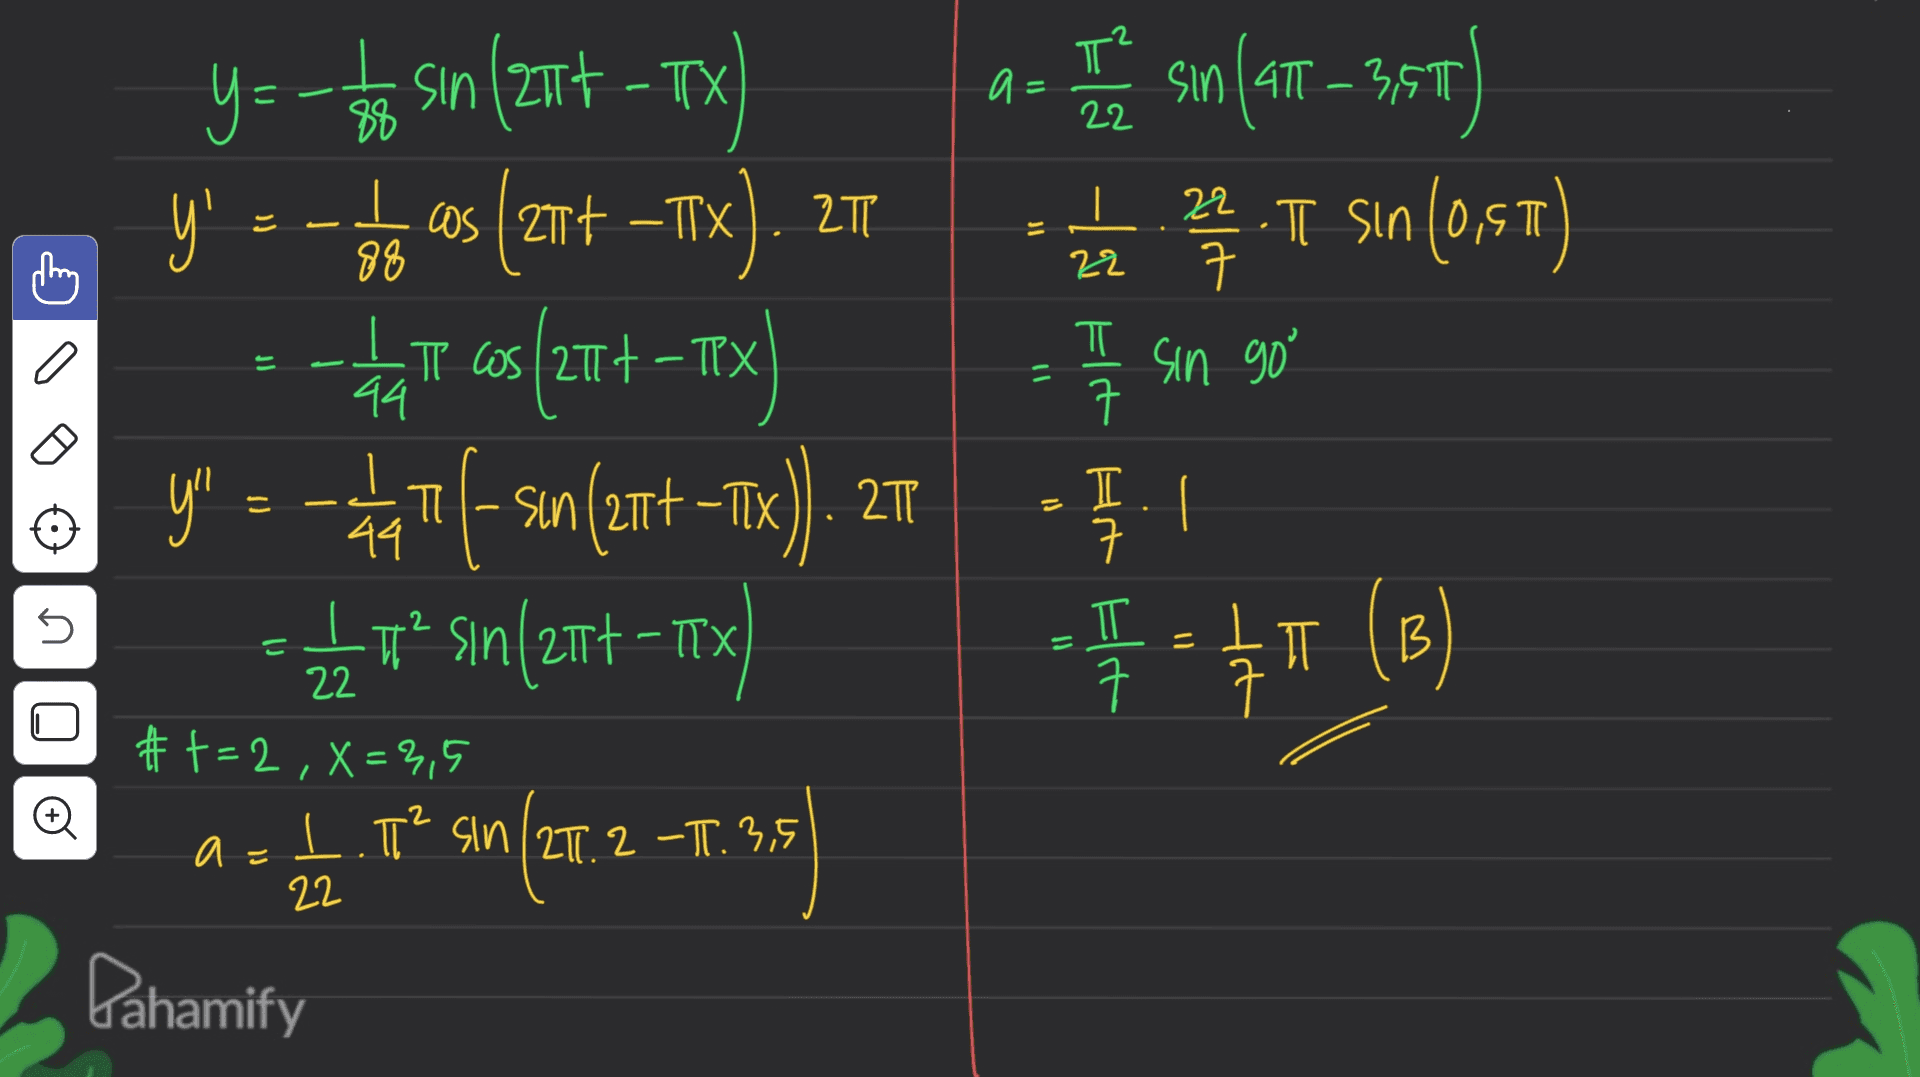 y = - 1/88 sin (2πt - πx)
y' = - 1/88 cos (2πt - πx) . 2π
= - 1/44 π cos (2πt - πx)
y'' = - 1/44 π (- sin (2πt - πx)) . 2π
= 1/22 π² sin (2πt - πx)
# t = 2 , x = 3,5
a = 1/22 . π² sin (2π. 2 - π. 3,5)
a = π²/22 sin (4π - 3,5π)
= 1/22 . 22/7 . π sin (0,5π)
= π/7 sin 90°
= π/7 . 1
= π/7 = 1/7 π (B)
Pahamify